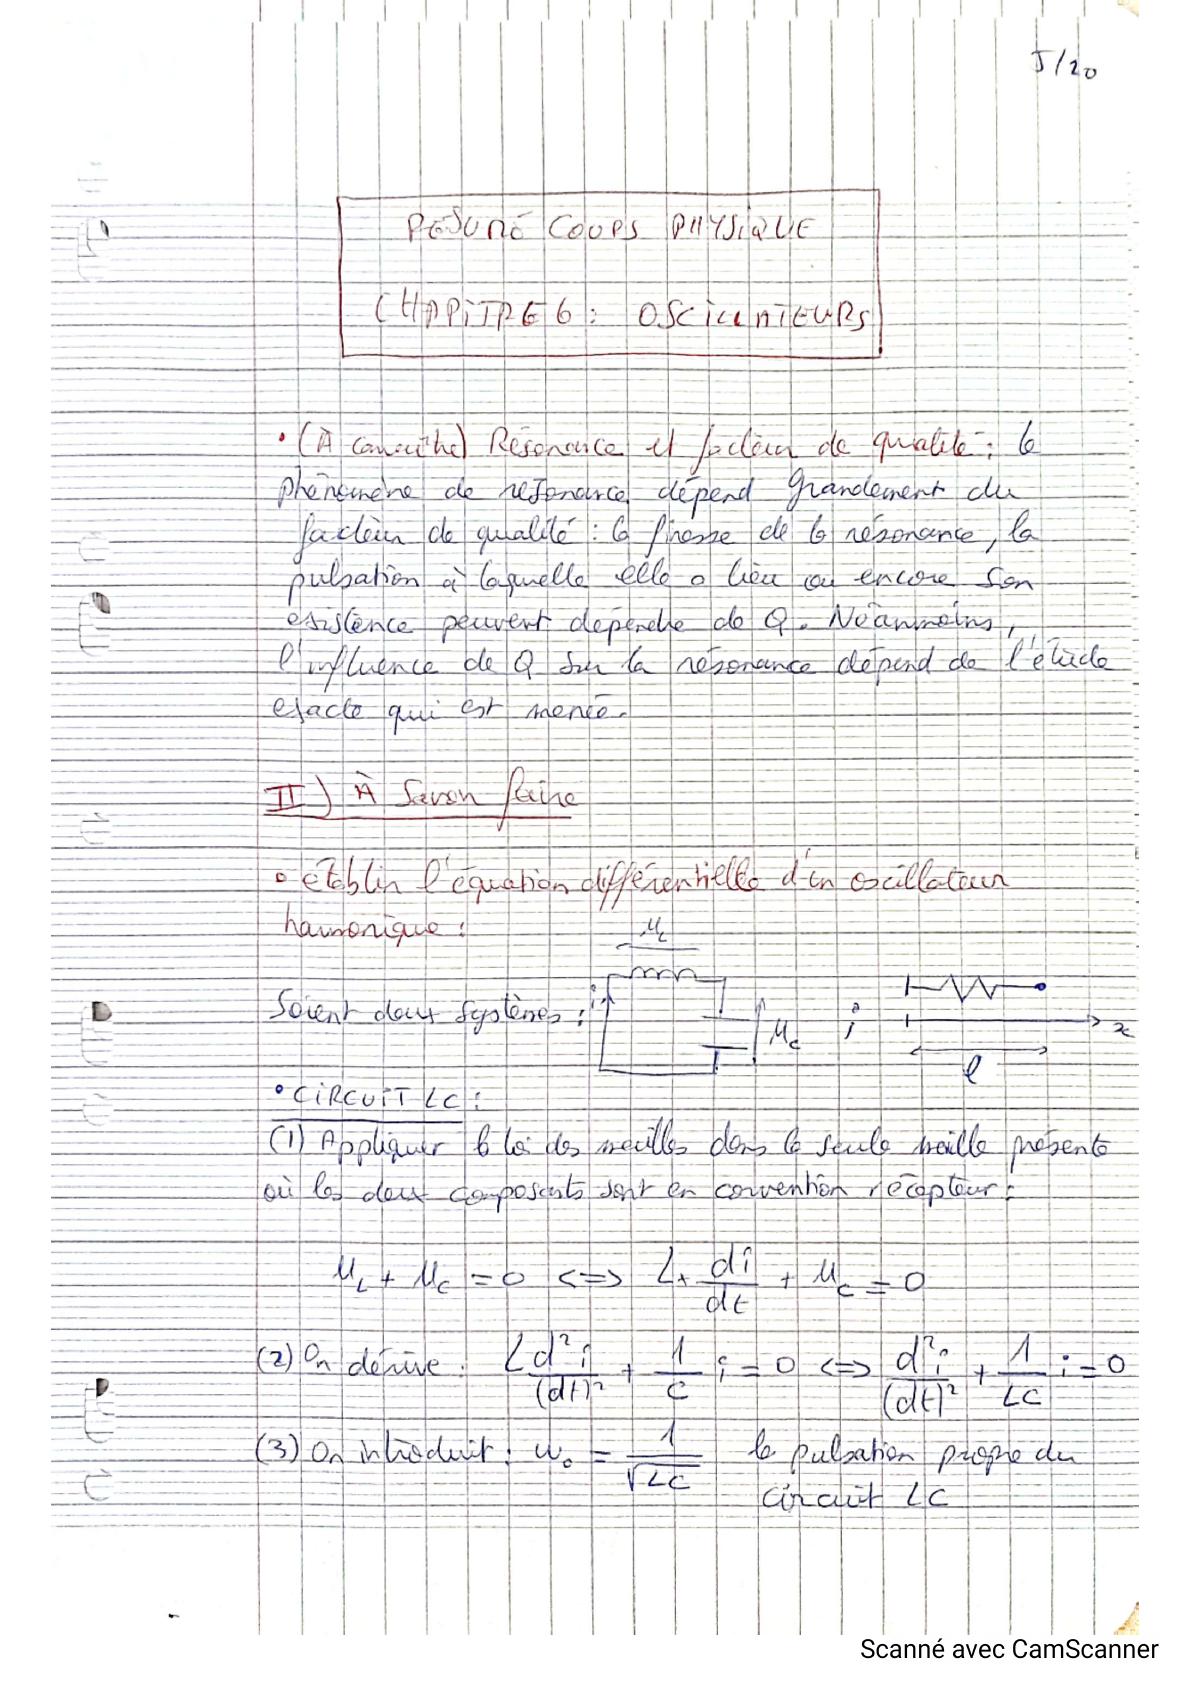 5/20
RÉSUMÉ COURS PHYSIQUE
CHAPITRE 6 : OSCILLATEURS
• (À connaître) Résonance et facteur de qualité : le
phénomène de résonance dépend grandement du
facteur de qualité : la finesse de la résonance, la
pulsation à laquelle elle a lieu ou encore son
existence peuvent dépendre de Q. Néanmoins,
l'influence de Q sur la résonance dépend de l'étude
exacte qui est menée.
II) À Savoir faire
• établir l'équation différentielle d'un oscillateur
harmonique :
u_L
Soient deux systèmes : i u_C ; x
l
• CIRCUIT LC :
(1) Appliquer la loi des mailles dans la seule maille présente
où les deux composants sont en convention récepteur :
u_L + u_C = 0 <=> L × di/dt + u_C = 0
(2) On dérive : L d²i/(dt)² + 1/C i = 0 <=> d²i/(dt)² + 1/LC i = 0
(3) On introduit : ω₀ = 1/√LC la pulsation propre du
circuit LC
Scanné avec CamScanner